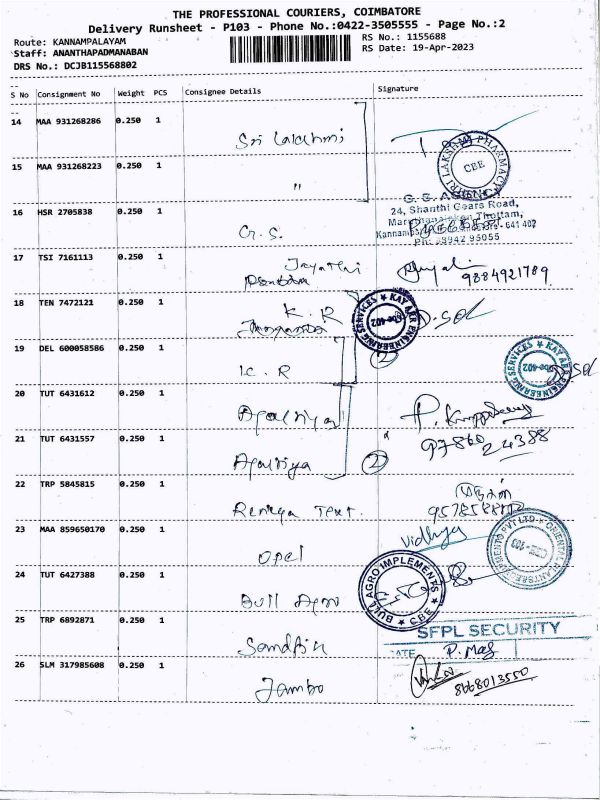 THE PROFESSIONAL COURIERS, COIMBATORE
Delivery Runsheet - P103 - Phone No.:0422-3505555 - Page No.:2
Route: KANNAMPALAYAM
RS No.: 1155688
Staff: ANANTHAPADMANABAN
RS Date: 19-Apr-2023
DRS No.: DCJB115568802
S No Consignment No Weight PCS Consignee Details Signature
14 MAA 931268286 0.250 1
Sri Lakshmi
SRI LAKSHMI PHARMACY CBE
15 MAA 931268223 0.250 1
"
G.S. AGENCY
16 HSR 2705838 0.250 1
24, Shanthi Gears Road,
Thottam,
G. S.
641 402
Ph: 99942 95055
17 TSI 7161113 0.250 1
Jayathi
9884921789
18 TEN 7472121 0.250 1
K. R
KAY AAR ENGINEERING SERVICES Cbe-402
19 DEL 600058586 0.250 1
2
KAY AAR ENGINEERING SERVICES Cbe-402
K. R
20 TUT 6431612 0.250 1
21 TUT 6431557 0.250 1
97860
24388
2
22 TRP 5845815 0.250 1
Text.
23 MAA 859650170 0.250 1
Vidhya
Opel
24 TUT 6427388 0.250 1
BULL AGRO IMPLEMENTS CBE
Bull Agro
25 TRP 6892871 0.250 1
SFPL SECURITY
Sandfin
DATE
26 SLM 317985608 0.250 1
8668013550
Jambo